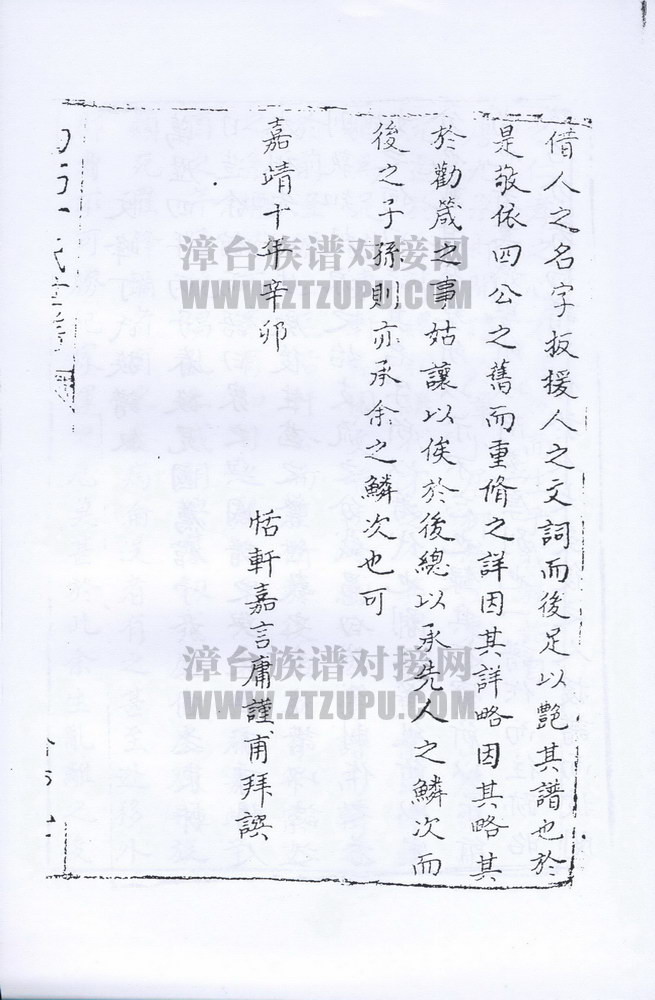 借人之名字扳援人之文詞而後足以艷其譜也於
是敬依四公之舊而重脩之詳因其詳略因其略其
於勸箴之事姑讓以俟於後總以承先人之鱗次而
後之子孫則亦承余之鱗次也可
嘉靖十年辛卯
恬軒嘉言庸謹甫拜譔
漳台族谱对接网
WWW.ZTZUPU.COM
漳台族谱对接网
WWW.ZTZUPU.COM